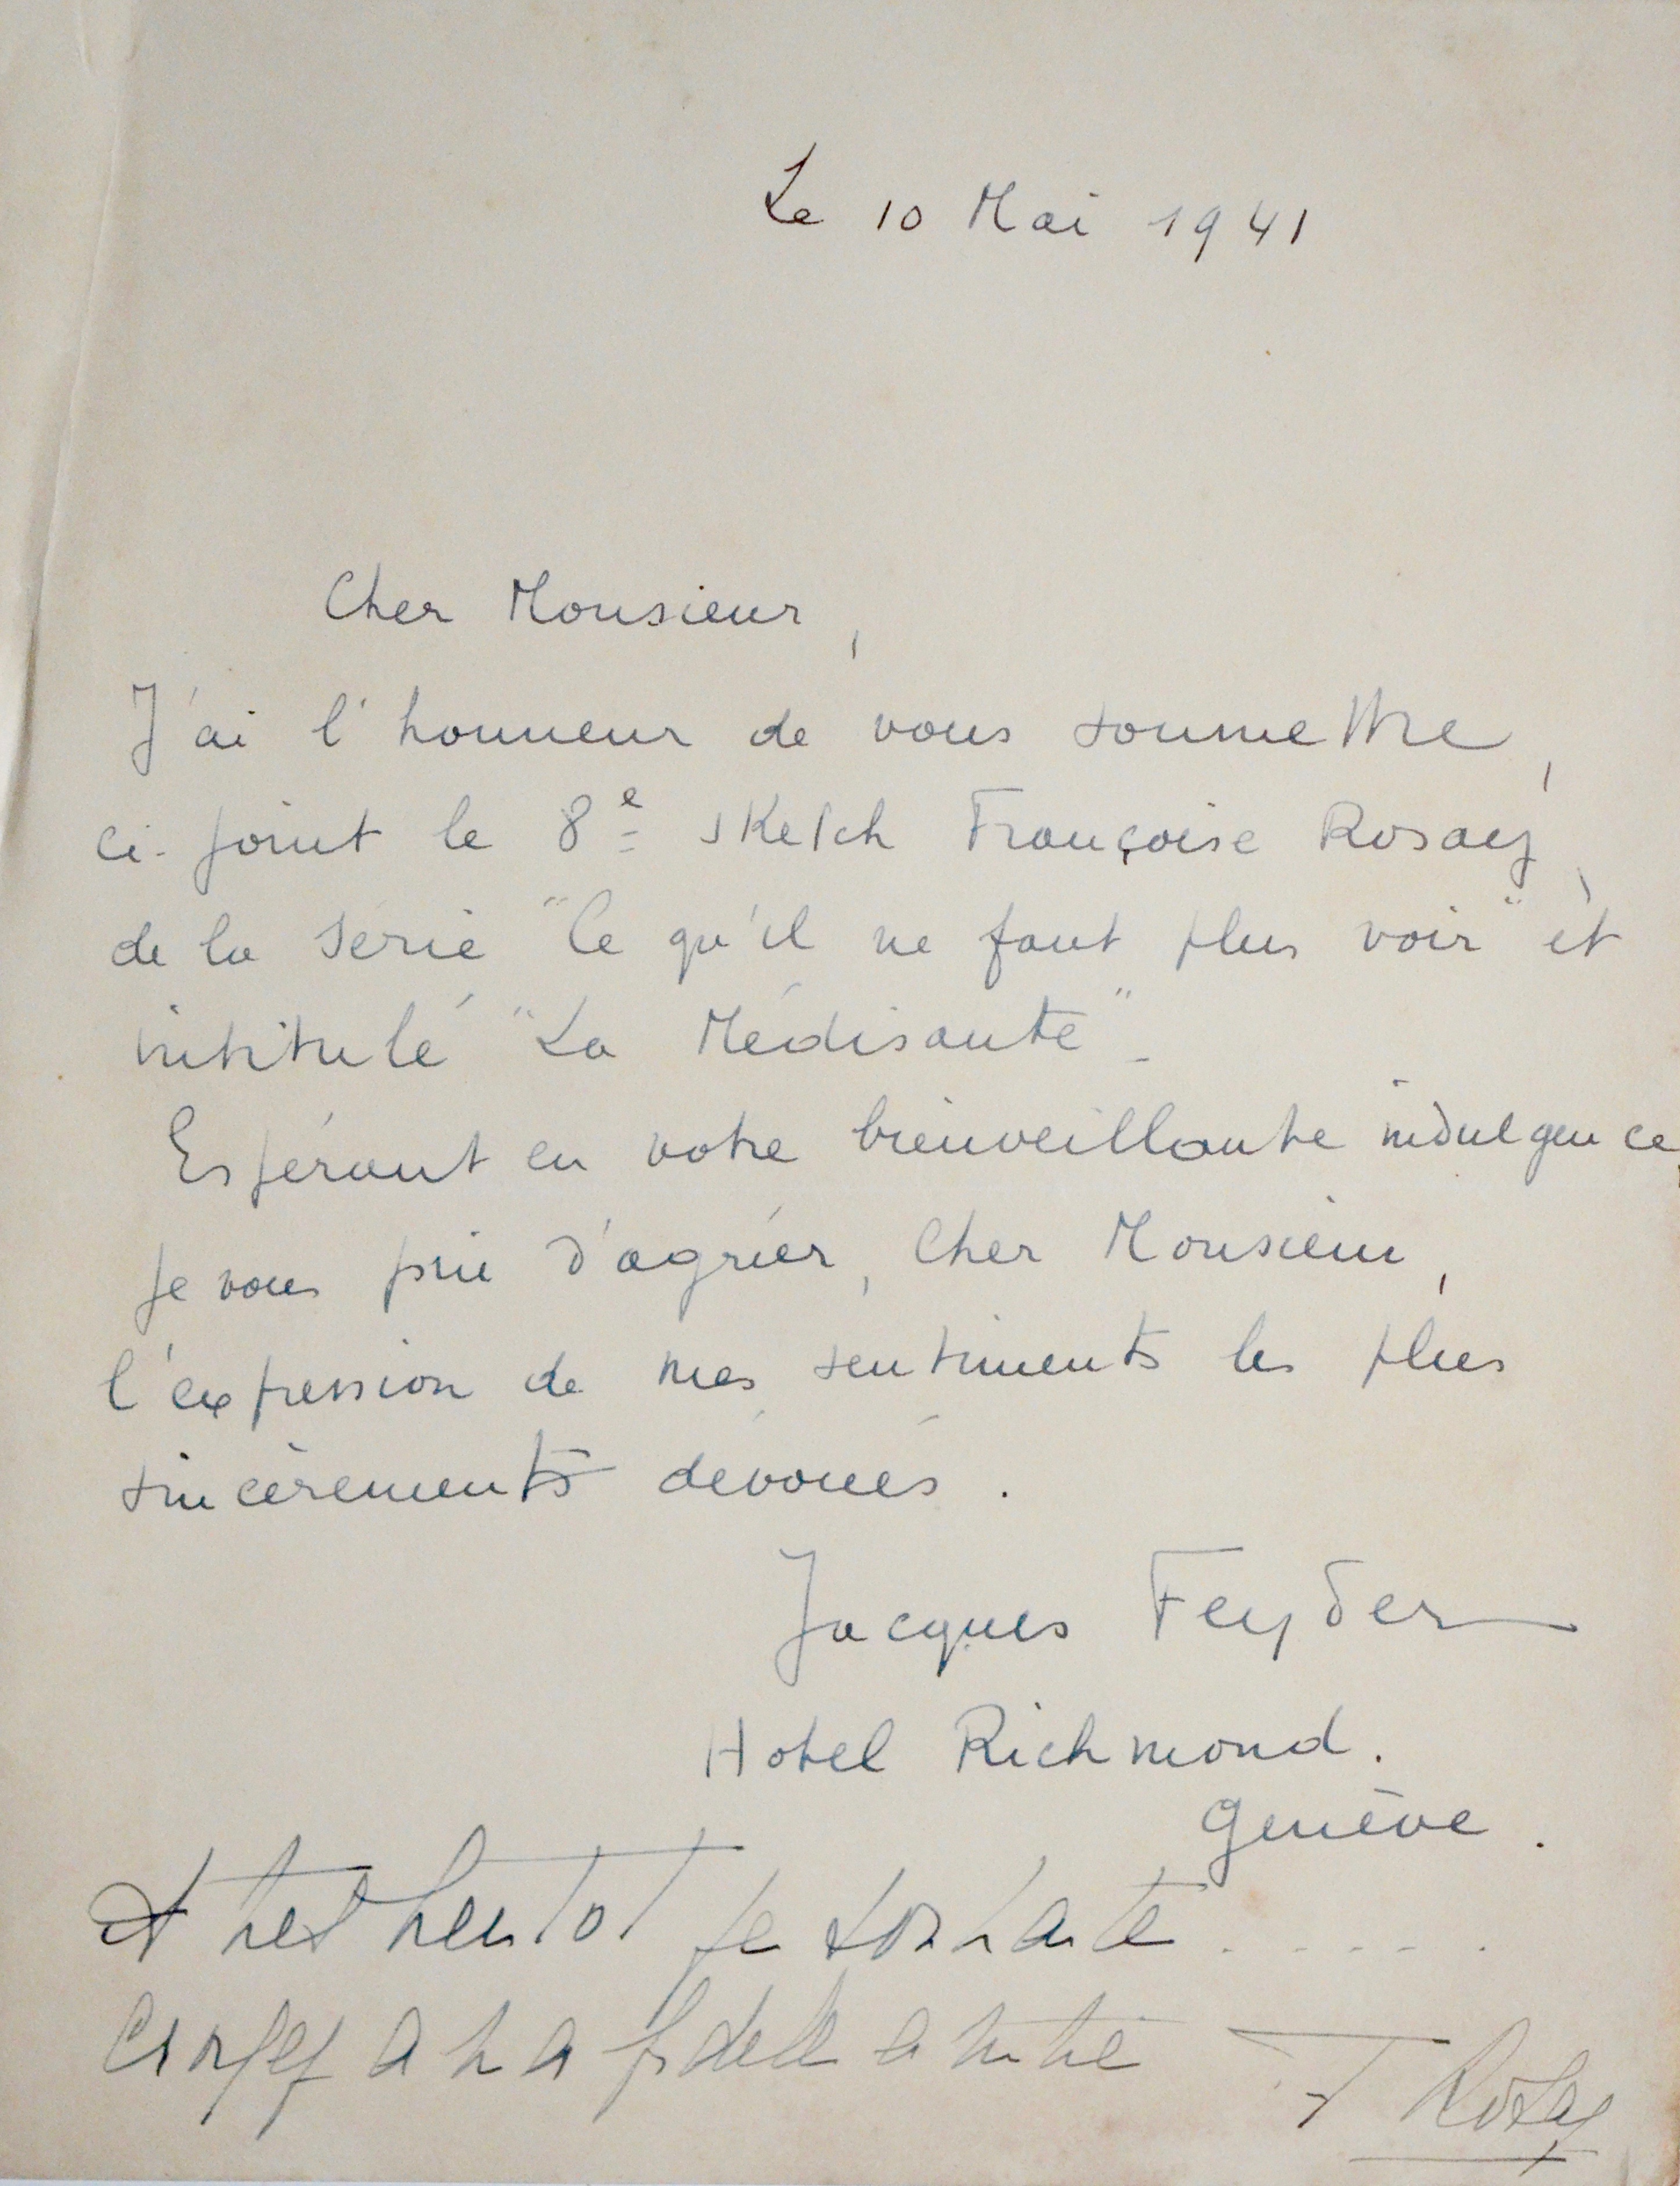 Le 10 Mai 1941
Cher Monsieur,
J'ai l'honneur de vous soumettre,
ci-joint le 8e sketch Françoise Rosay,
de la série "Ce qu'il ne faut plus voir" et
intitulé "La Médisante".
Espérant en votre bienveillante indulgence,
je vous prie d'agréer, Cher Monsieur,
l'expression de mes sentiments les plus
sincèrements dévoués.
Jacques Feyder
Hotel Richmond.
Genève.
A très bientot je souhaite.....
Croyez à ma fidèle amitié F Rosay